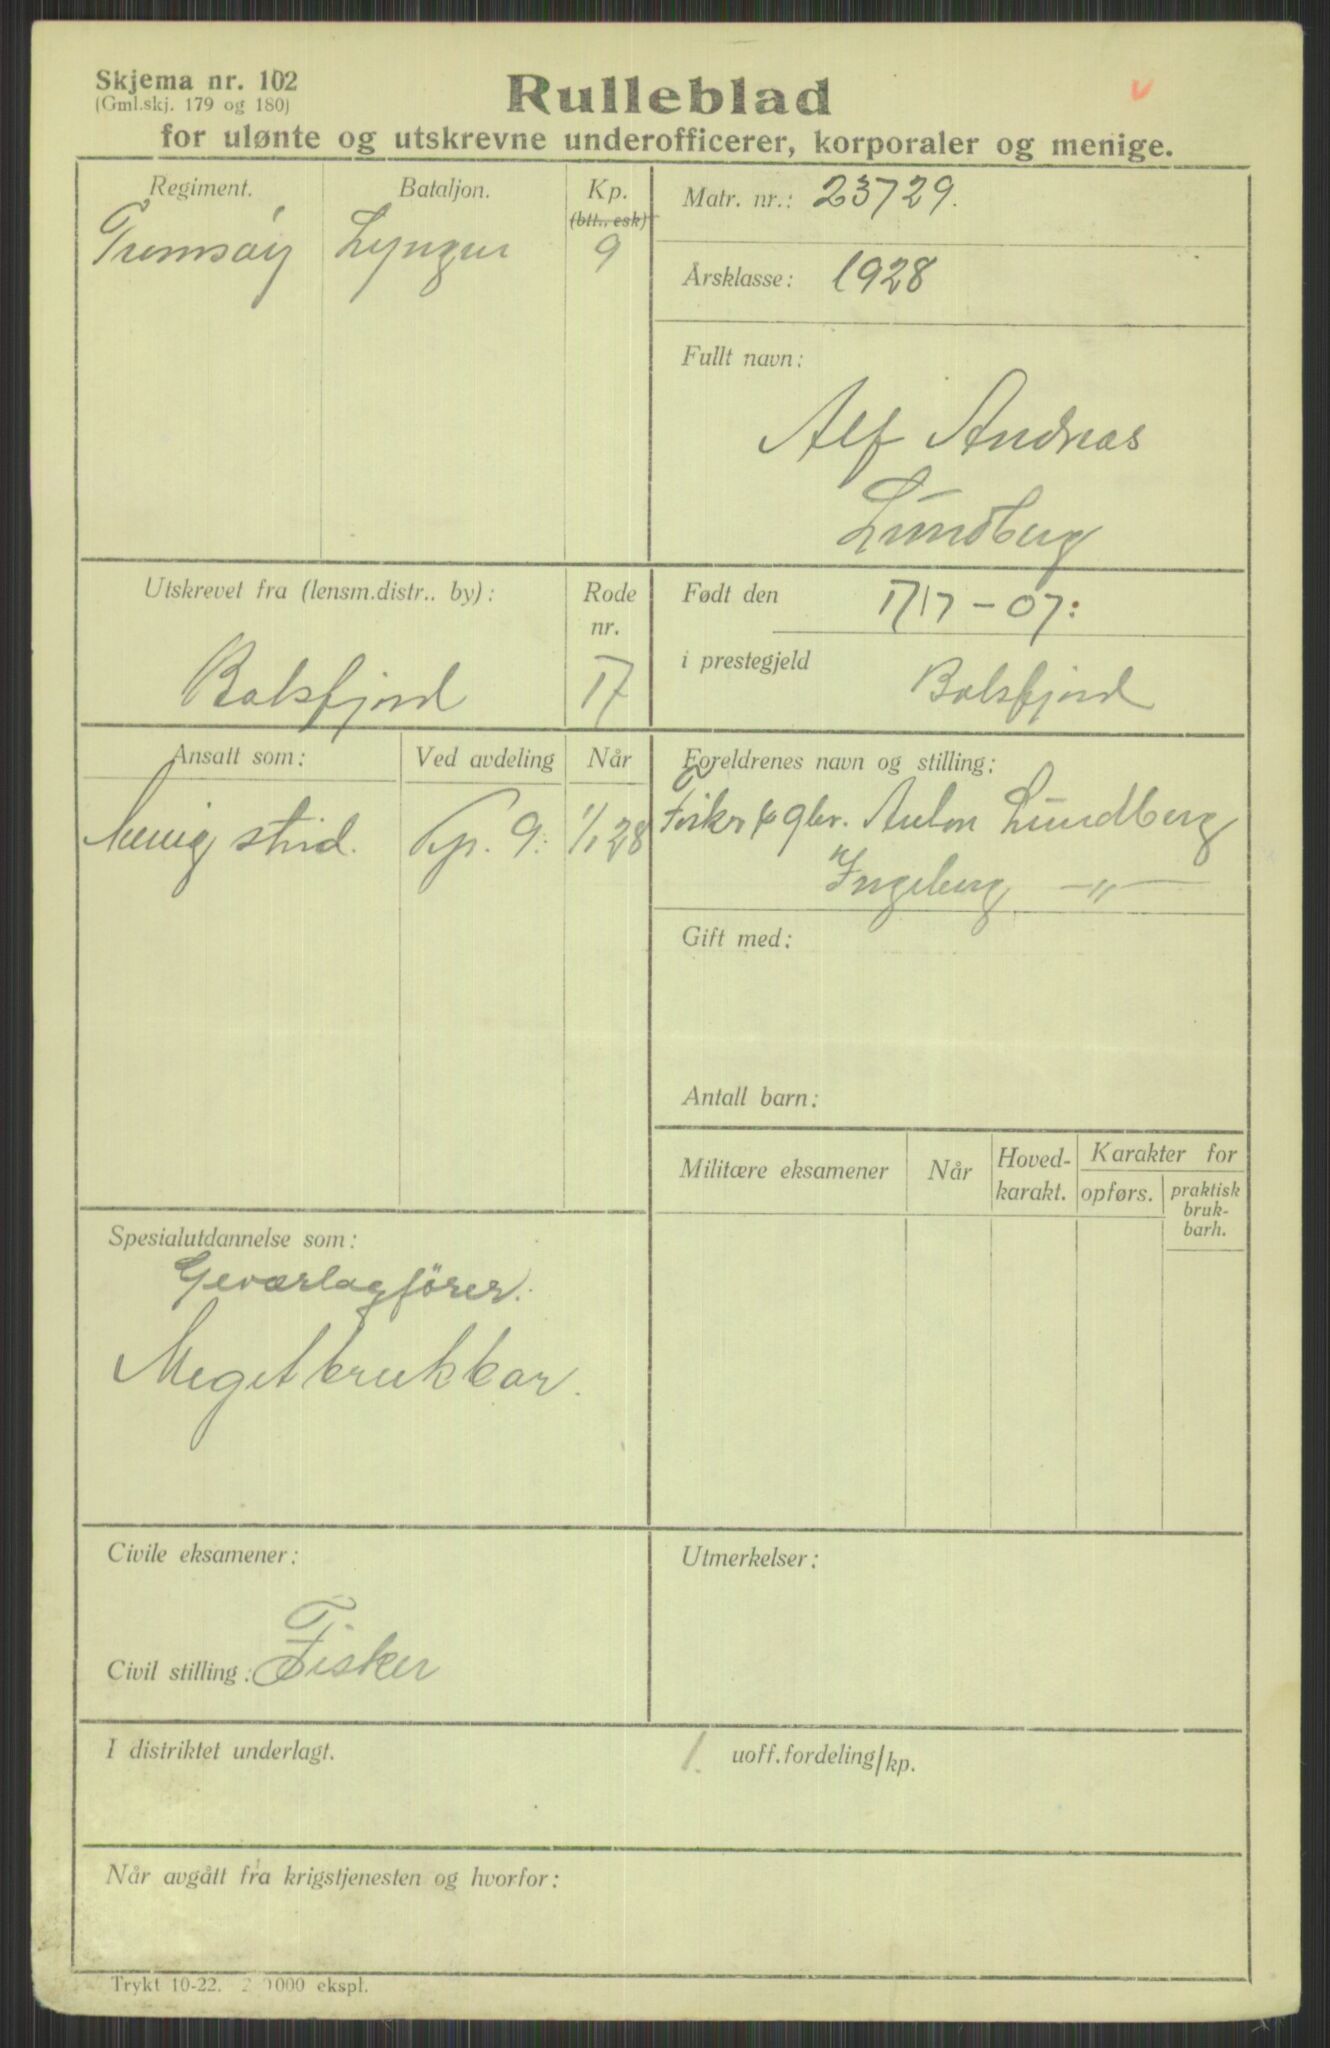 Skjema nr. 102
(Gml.skj. 179 og 180)
Rulleblad
for ulønte og utskrevne underofficerer, korporaler og menige.
Regiment.
Bataljon.
Kp.
(btt., esk)
Lyngen
9
Matr. nr.: 23729.
Årsklasse: 1928
Fullt navn:
Alf Andreas
Lundberg
Utskrevet fra (lensm.distr.. by):
Rode
nr.
Balsfjord
Født den
i prestegjeld
Balsfjord
Ansatt som:
Ved avdeling
Når
Menig strid.
Kp. 9.
1/1 28
Foreldrenes navn og stilling:
Fisker & gbr. Anton Lundberg
Ingeberg —〃—
Gift med:
Antall barn:
Militære eksamener
Når
Hoved-
karakt.
Karakter for
opførs.
praktisk
bruk-
barh.
Spesialutdannelse som:
Geværlagfører.
Meget brukbar.
Civile eksamener:
Civil stilling: Fisker
Utmerkelser:
I distriktet underlagt.
1. uoff.fordeling/kp.
Når avgått fra krigstjenesten og hvorfor:
Trykt 10-22. 000 ekspl.